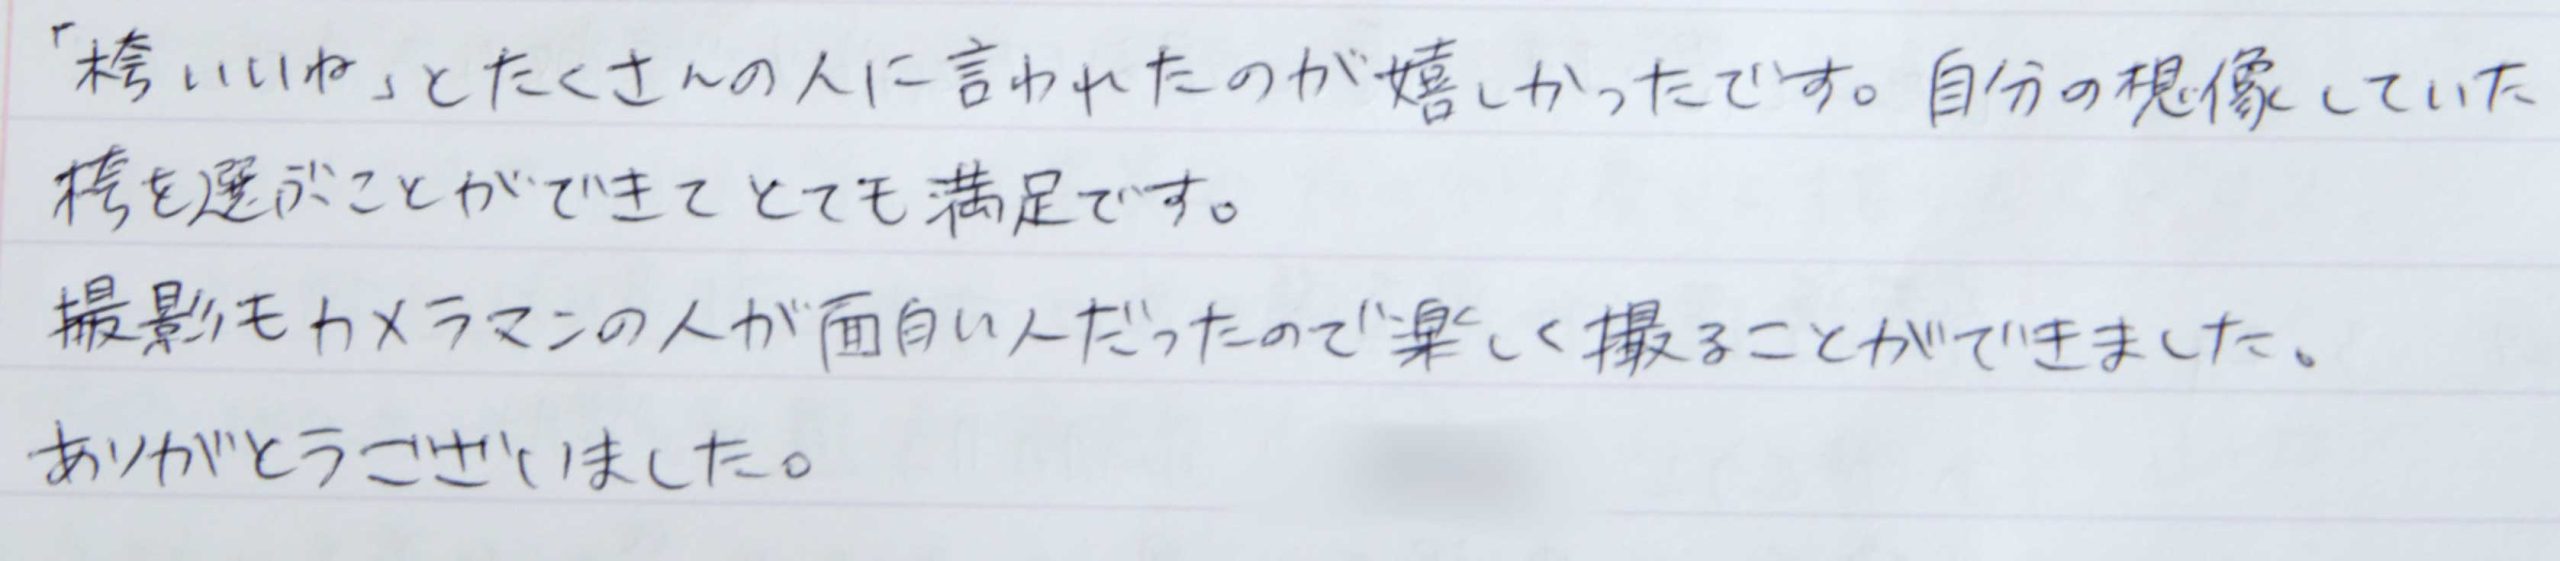 「袴いいね」とたくさんの人に言われたのが嬉しかったです。自分の想像していた
袴を選ぶことができてとても満足です。
撮影もカメラマンの人が面白い人だったので楽しく撮ることができました。
ありがとうございました。